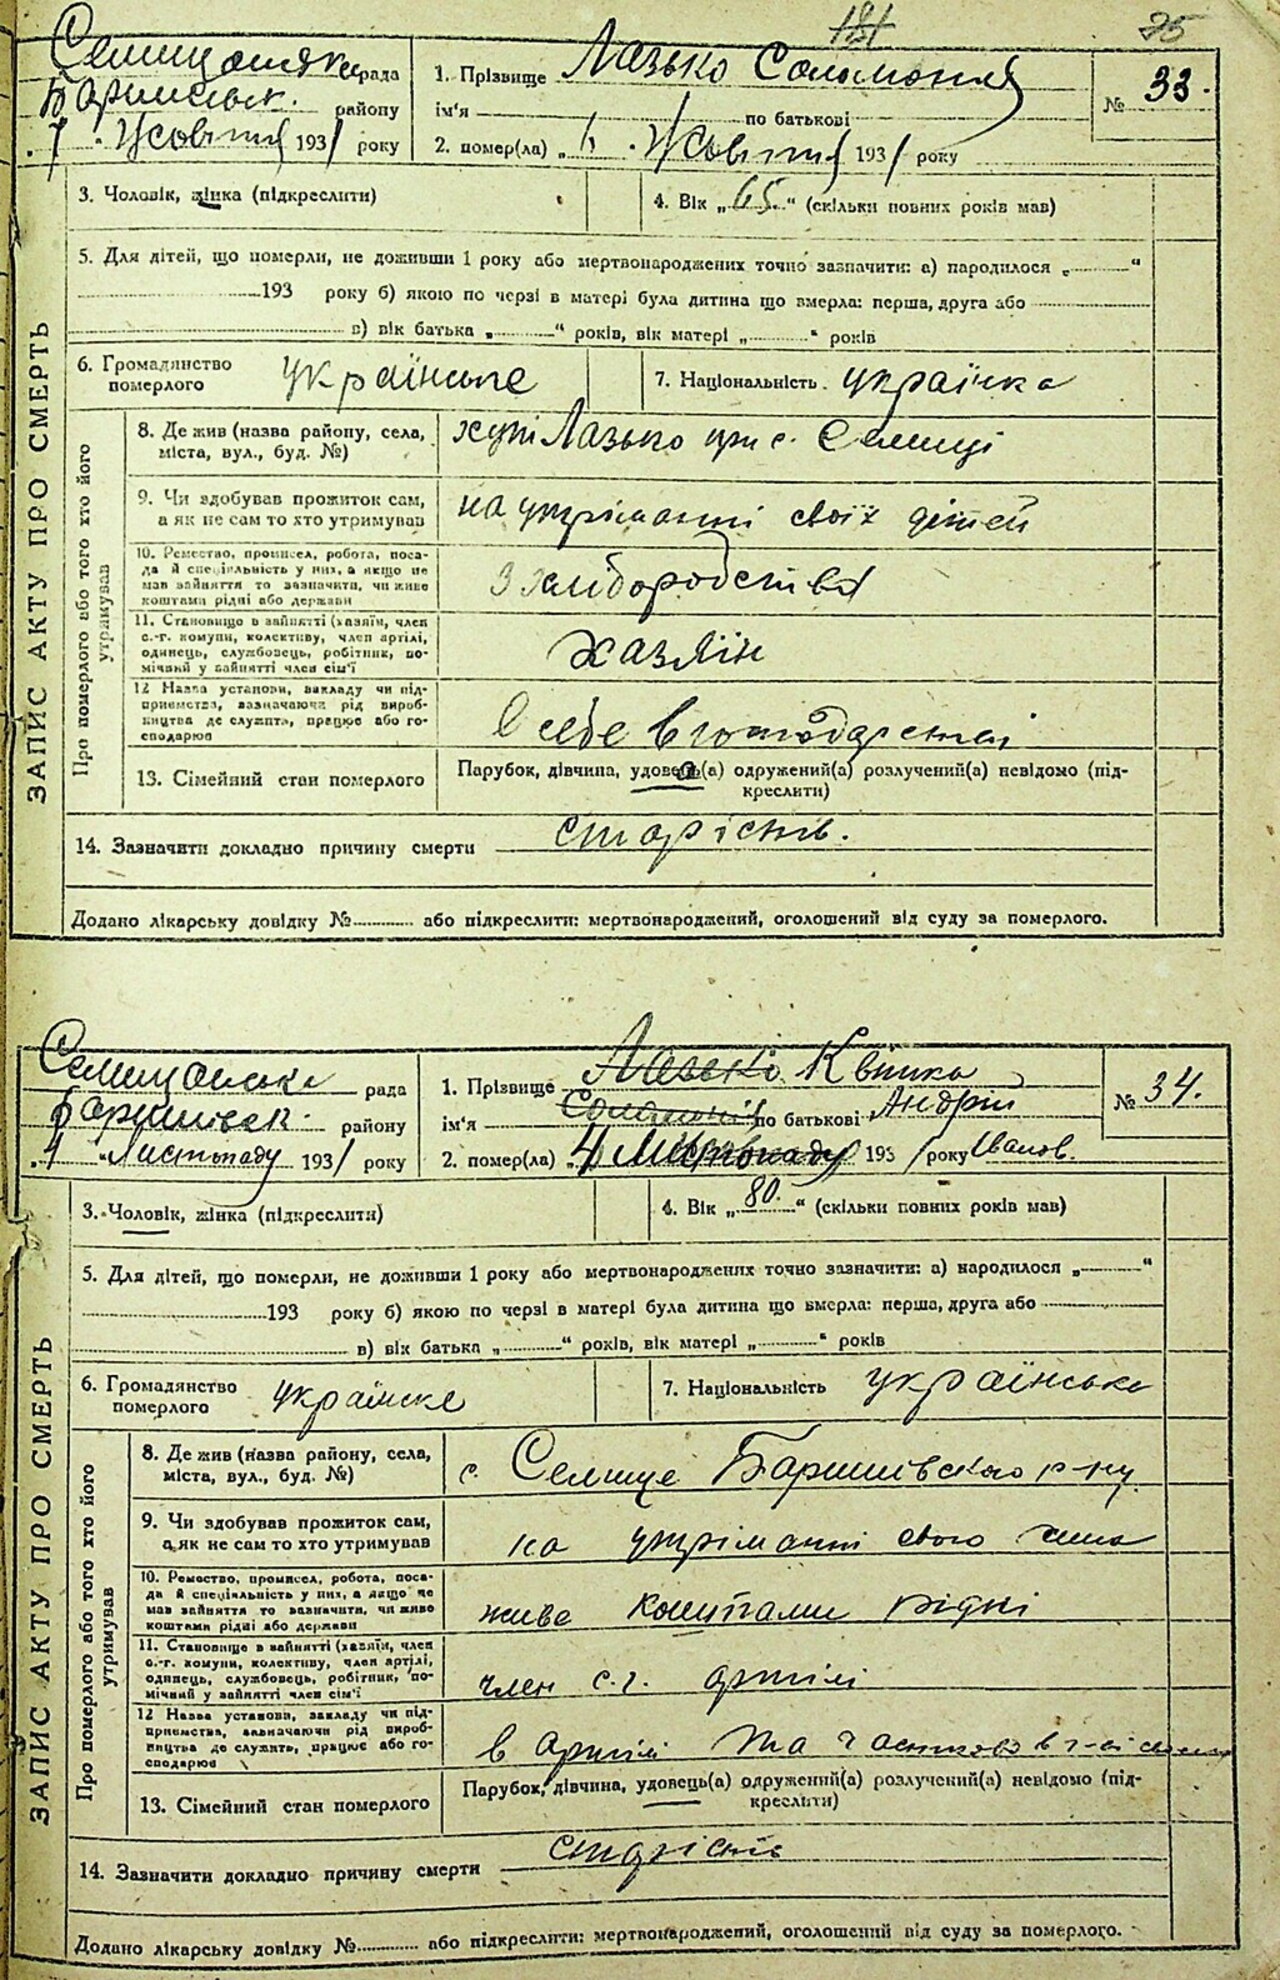 181 25
Селищанська рада
Баришівськ. району
7 Жовтня 1931 року
1. Прізвище Лазько Соломонія
ім'я по батькові
2. помер(ла) „6 Жовтня 1931 року
№ 33.
ЗАПИС АКТУ ПРО СМЕРТЬ
3. Чоловік, жінка (підкреслити)
4. Вік „65" (скільки повних років мав)
5. Для дітей, що померли, не доживши 1 року або мертвонароджених точно зазначити: а) народилося „ "
193 року б) якою по черзі в матері була дитина що вмерла: перша, друга або
в) вік батька „ " років, вік матері „ " років
6. Громадянство померлого українське
7. Національність українка
Про померлого або того хто його утримував
8. Де жив (назва району, села, міста, вул., буд. №)
хуті Лазько при с. Селищі
9. Чи здобував прожиток сам, а як не сам то хто утримував
на утріманні своїх дітей
10. Ремество, промисел, робота, посада й спеціяльність у них, а якщо не мав зайняття то зазначити, чи живе коштами рідні або держави
З хліборобства
11. Становище в зайнятті (хазяїн, член с.-г. комуни, колективу, член артілі, одинець, службовець, робітник, помічний у зайнятті член сім'ї
хазяїн
12 Назва установи, закладу чи підприємства, зазначаючи рід виробництва де служить, працює або господарює
В себе в господарстві
13. Сімейний стан померлого
Парубок, дівчина, удовець(а) одружений(а) розлучений(а) невідомо (підкреслити)
14. Зазначити докладно причину смерти старість.
Додано лікарську довідку № або підкреслити: мертвонароджений, оголошений від суду за померлого.
Селищанська рада
Баришівськ. району
4 Листопаду 1931 року
1. Прізвище Лазько Квітка
ім'я Соломонія по батькові Андрій
2. помер(ла) „4 Листопаду 1931 року Іванов.
№ 34.
ЗАПИС АКТУ ПРО СМЕРТЬ
3. Чоловік, жінка (підкреслити)
4. Вік „80." (скільки повних років мав)
5. Для дітей, що померли, не доживши 1 року або мертвонароджених точно зазначити: а) народилося „ "
193 року б) якою по черзі в матері була дитина що вмерла: перша, друга або
в) вік батька „ " років, вік матері „ " років
6. Громадянство померлого українске
7. Національність українська
Про померлого або того хто його утримував
8. Де жив (назва району, села, міста, вул., буд. №)
с. Селище Баришівського р-ну
9. Чи здобував прожиток сам, а як не сам то хто утримував
на утріманні свого сина
10. Ремество, промисел, робота, посада й спеціяльність у них, а якщо не мав зайняття то зазначити, чи живе коштами рідні або держави
живе коштами рідні
11. Становище в зайнятті (хазяїн, член с.-г. комуни, колективу, член артілі, одинець, службовець, робітник, помічний у зайнятті член сім'ї
член с.г. артілі
12 Назва установи, закладу чи підприємства, зазначаючи рід виробництва де служить, працює або господарює
в артілі та частково в
13. Сімейний стан померлого
Парубок, дівчина, удовець(а) одружений(а) розлучений(а) невідомо (підкреслити)
14. Зазначити докладно причину смерти старість
Додано лікарську довідку № або підкреслити: мертвонароджений, оголошений від суду за померлого.